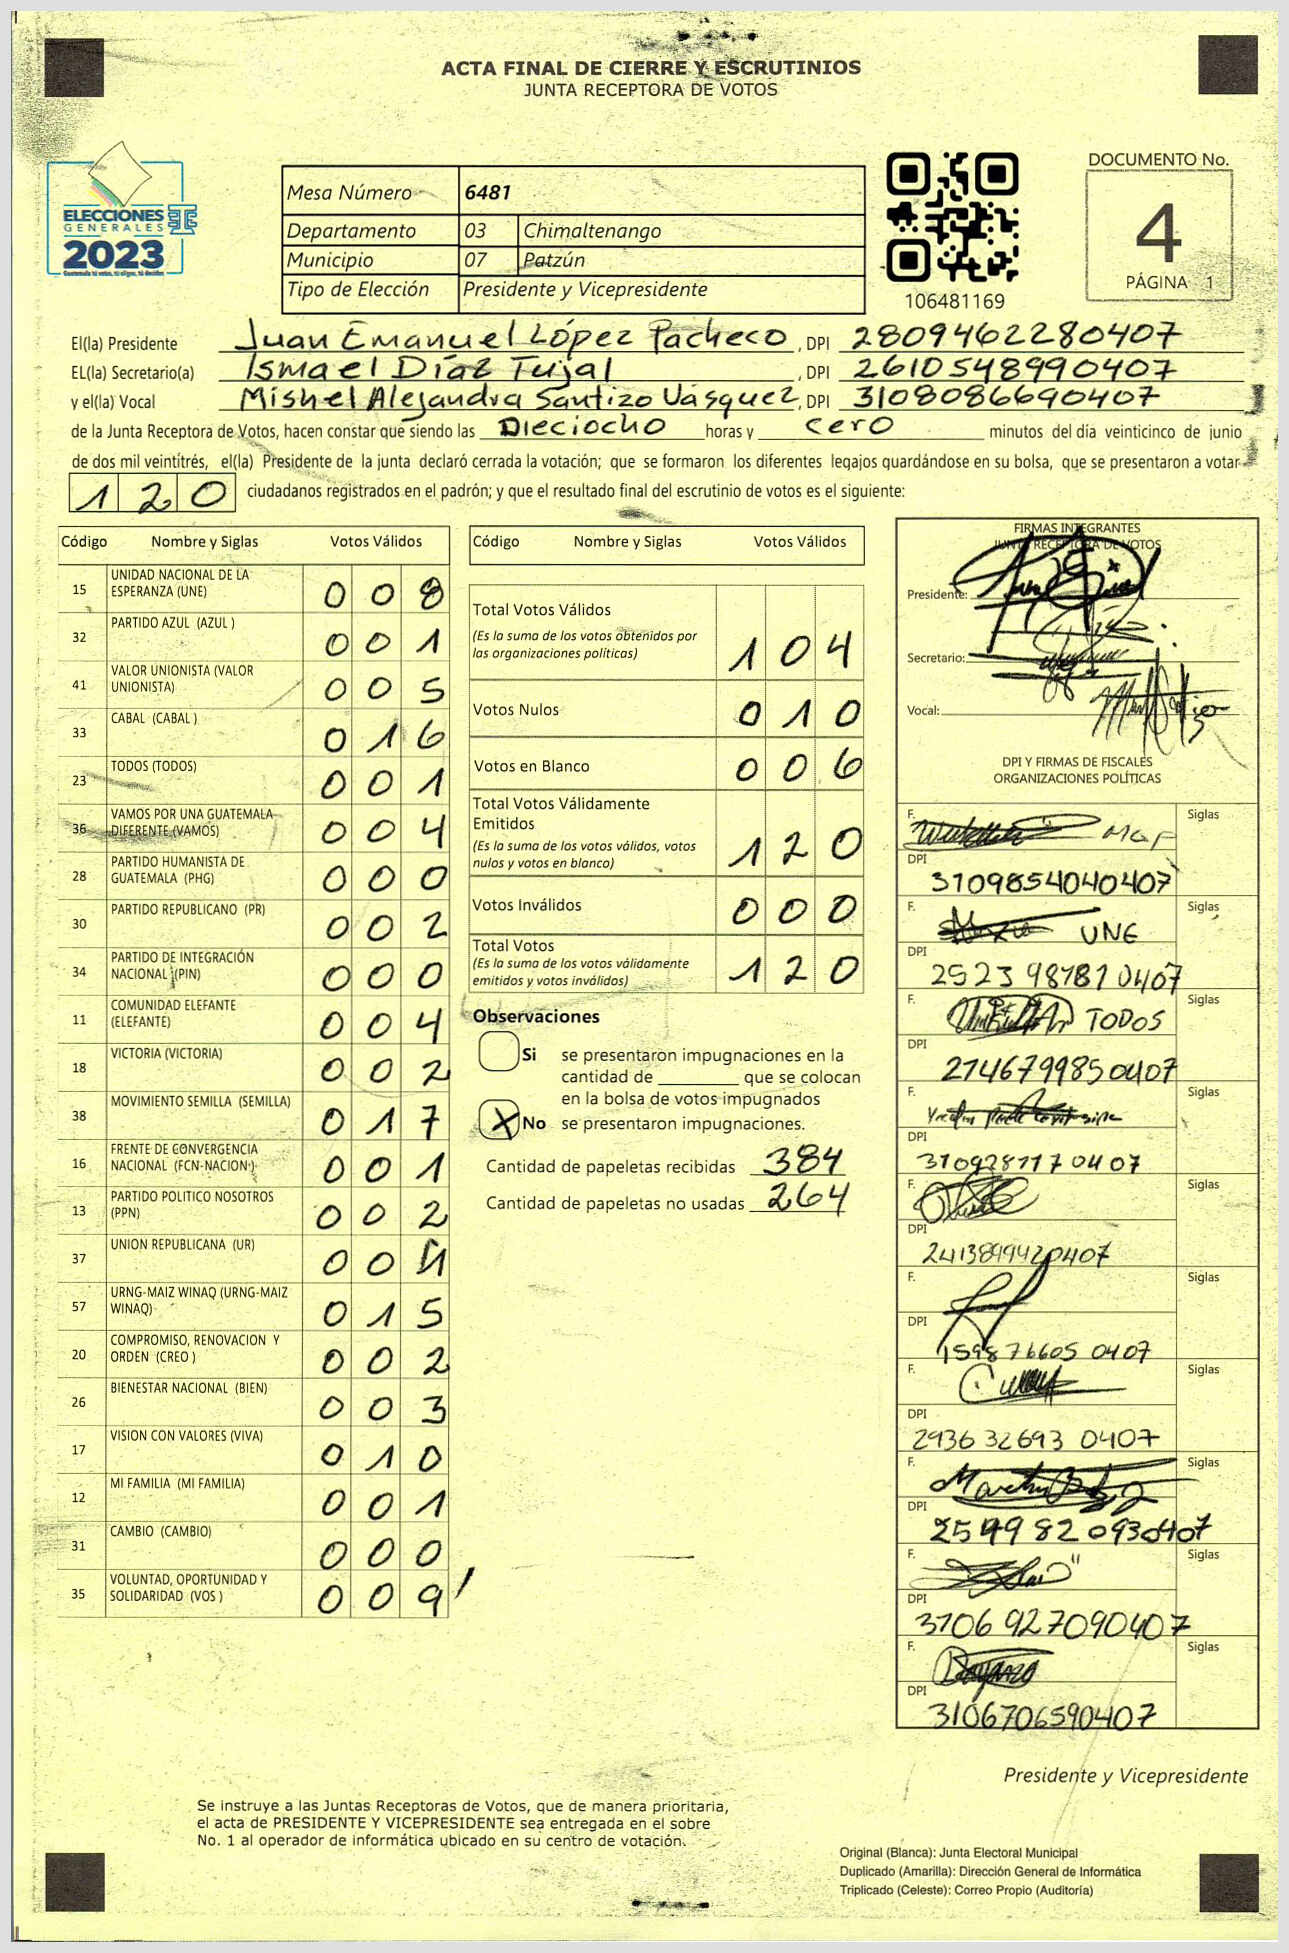 ACTA FINAL DE CIERRE Y ESCRUTINIOS
JUNTA RECEPTORA DE VOTOS
ELECCIONES
GENERALES
2023
Guatemala tú votas, tú eliges, tú decides
Mesa Número 6481
Departamento 03 Chimaltenango
Municipio 07 Patzún
Tipo de Elección Presidente y Vicepresidente
106481169
DOCUMENTO No.
4
PÁGINA 1
El(la) Presidente Juan Emanuel López Pacheco, DPI 2809462280407
EL(la) Secretario(a) Ismael Díaz Tujal, DPI 2610548990407
y el(la) Vocal Mishel Alejandra Santizo Vásquez, DPI 3108086690407
de la Junta Receptora de Votos, hacen constar que siendo las Dieciocho horas y cero minutos del día veinticinco de junio
de dos mil veintitrés, el(la) Presidente de la junta declaró cerrada la votación; que se formaron los diferentes legajos guardándose en su bolsa, que se presentaron a votar
120 ciudadanos registrados en el padrón; y que el resultado final del escrutinio de votos es el siguiente:
Código Nombre y Siglas Votos Válidos
15 UNIDAD NACIONAL DE LA ESPERANZA (UNE) 008
32 PARTIDO AZUL (AZUL ) 001
41 VALOR UNIONISTA (VALOR UNIONISTA) 005
33 CABAL (CABAL ) 016
23 TODOS (TODOS) 001
36 VAMOS POR UNA GUATEMALA DIFERENTE (VAMOS) 004
28 PARTIDO HUMANISTA DE GUATEMALA (PHG) 000
30 PARTIDO REPUBLICANO (PR) 002
34 PARTIDO DE INTEGRACIÓN NACIONAL (PIN) 000
11 COMUNIDAD ELEFANTE (ELEFANTE) 004
18 VICTORIA (VICTORIA) 002
38 MOVIMIENTO SEMILLA (SEMILLA) 017
16 FRENTE DE CONVERGENCIA NACIONAL (FCN-NACION ) 001
13 PARTIDO POLITICO NOSOTROS (PPN) 002
37 UNION REPUBLICANA (UR) 004
57 URNG-MAIZ WINAQ (URNG-MAIZ WINAQ) 015
20 COMPROMISO, RENOVACION Y ORDEN (CREO ) 002
26 BIENESTAR NACIONAL (BIEN) 003
17 VISION CON VALORES (VIVA) 010
12 MI FAMILIA (MI FAMILIA) 001
31 CAMBIO (CAMBIO) 000
35 VOLUNTAD, OPORTUNIDAD Y SOLIDARIDAD (VOS ) 009
Código Nombre y Siglas Votos Válidos
Total Votos Válidos
(Es la suma de los votos obtenidos por
las organizaciones políticas) 104
Votos Nulos 010
Votos en Blanco 006
Total Votos Válidamente
Emitidos
(Es la suma de los votos válidos, votos
nulos y votos en blanco) 120
Votos Inválidos 000
Total Votos
(Es la suma de los votos válidamente
emitidos y votos inválidos) 120
Observaciones
Si se presentaron impugnaciones en la
cantidad de ________ que se colocan
en la bolsa de votos impugnados
X No se presentaron impugnaciones.
Cantidad de papeletas recibidas 384
Cantidad de papeletas no usadas 264
FIRMAS INTEGRANTES
JUNTA RECEPTORA DE VOTOS
Presidente:
Secretario:
Vocal:
DPI Y FIRMAS DE FISCALES
ORGANIZACIONES POLÍTICAS
F. Siglas
DPI
3109854040407
F. UNE Siglas
DPI
2523 98781 0407
F. TODOS Siglas
DPI
2746799850407
F. Siglas
DPI
3109281170407
F. Siglas
DPI
2413899420407
F. Siglas
DPI
159876605 0407
F. Siglas
DPI
2936 32693 0407
F. Siglas
DPI
2599820930407
F. Siglas
DPI
3706 927090407
F. Siglas
DPI
3106706590407
Presidente y Vicepresidente
Se instruye a las Juntas Receptoras de Votos, que de manera prioritaria,
el acta de PRESIDENTE Y VICEPRESIDENTE sea entregada en el sobre
No. 1 al operador de informática ubicado en su centro de votación.
Original (Blanca): Junta Electoral Municipal
Duplicado (Amarilla): Dirección General de Informática
Triplicado (Celeste): Correo Propio (Auditoría)